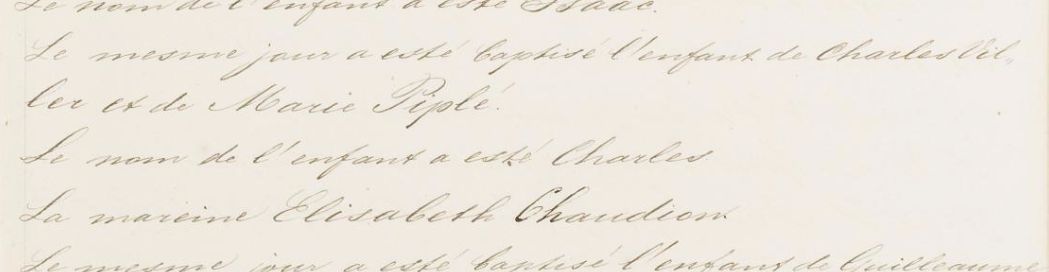 Le nom de l'enfant a esté Isaac.
Le mesme jour a esté baptisé l'enfant de Charles Vil-
ler et de Marie Piplé.
Le nom de l'enfant a esté Charles
La mareine Elisabeth Chaudion
Le mesme jour a esté baptisé l'enfant de Guilleaume